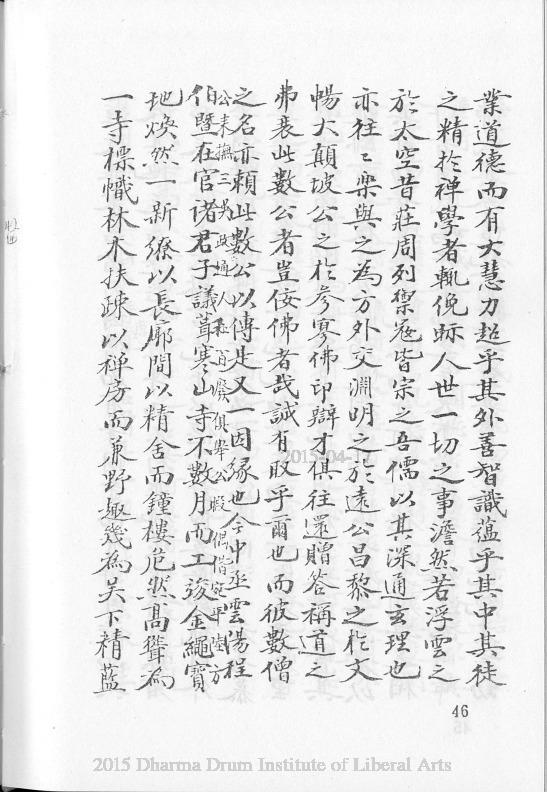 業道德而有大慧力超乎其外善智識蘊乎其中其徒
之精於禅學者輒俛眎人世一切之事澹然若浮雲之
於太空昔莊周列禦寇皆宗之吾儒以其深通玄理也
亦往〻樂與之為方外交淵明之於遠公昌黎之於文
暢大顛坡公之於參寥佛印辯才俱往還贈答稱道之
弗衰此數公者豈佞佛者哉誠有取乎爾也而彼數僧
之名亦賴此數公以傳是又一因緣也今中丞雲陽程
公来撫三吳政通人和百廢俱舉公暇偶偕宛平陶方
伯暨在官诸君子議葺寒山寺不數月而工竣金繩寳
地煥然一新繚以長廊間以精舍而鐘樓危然髙聳為
一寺標幟林木扶疎以禅房而兼野趣幾為吴下精藍
46
2015-04-17
2015 Dharma Drum Institute of Liberal Arts